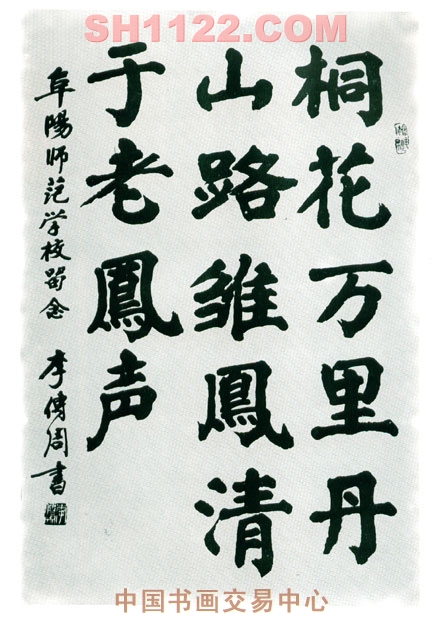 SH1122.COM
桐花万里丹
山路雏鳳清
于老鳳声
阜陽师范学校留念
李傳周書
中国书画交易中心